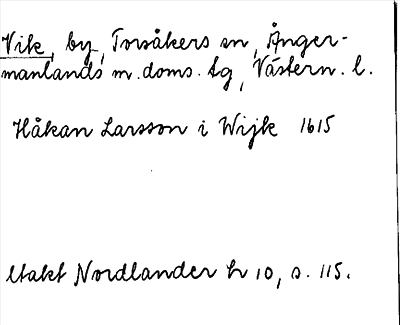 Vik, by, Torsåkers sn, Ånger-
manlands m. doms. tg, Västern. l.
Håkan Larsson i Wijk 1615
Utakt Nordlander h 10, s. 115.